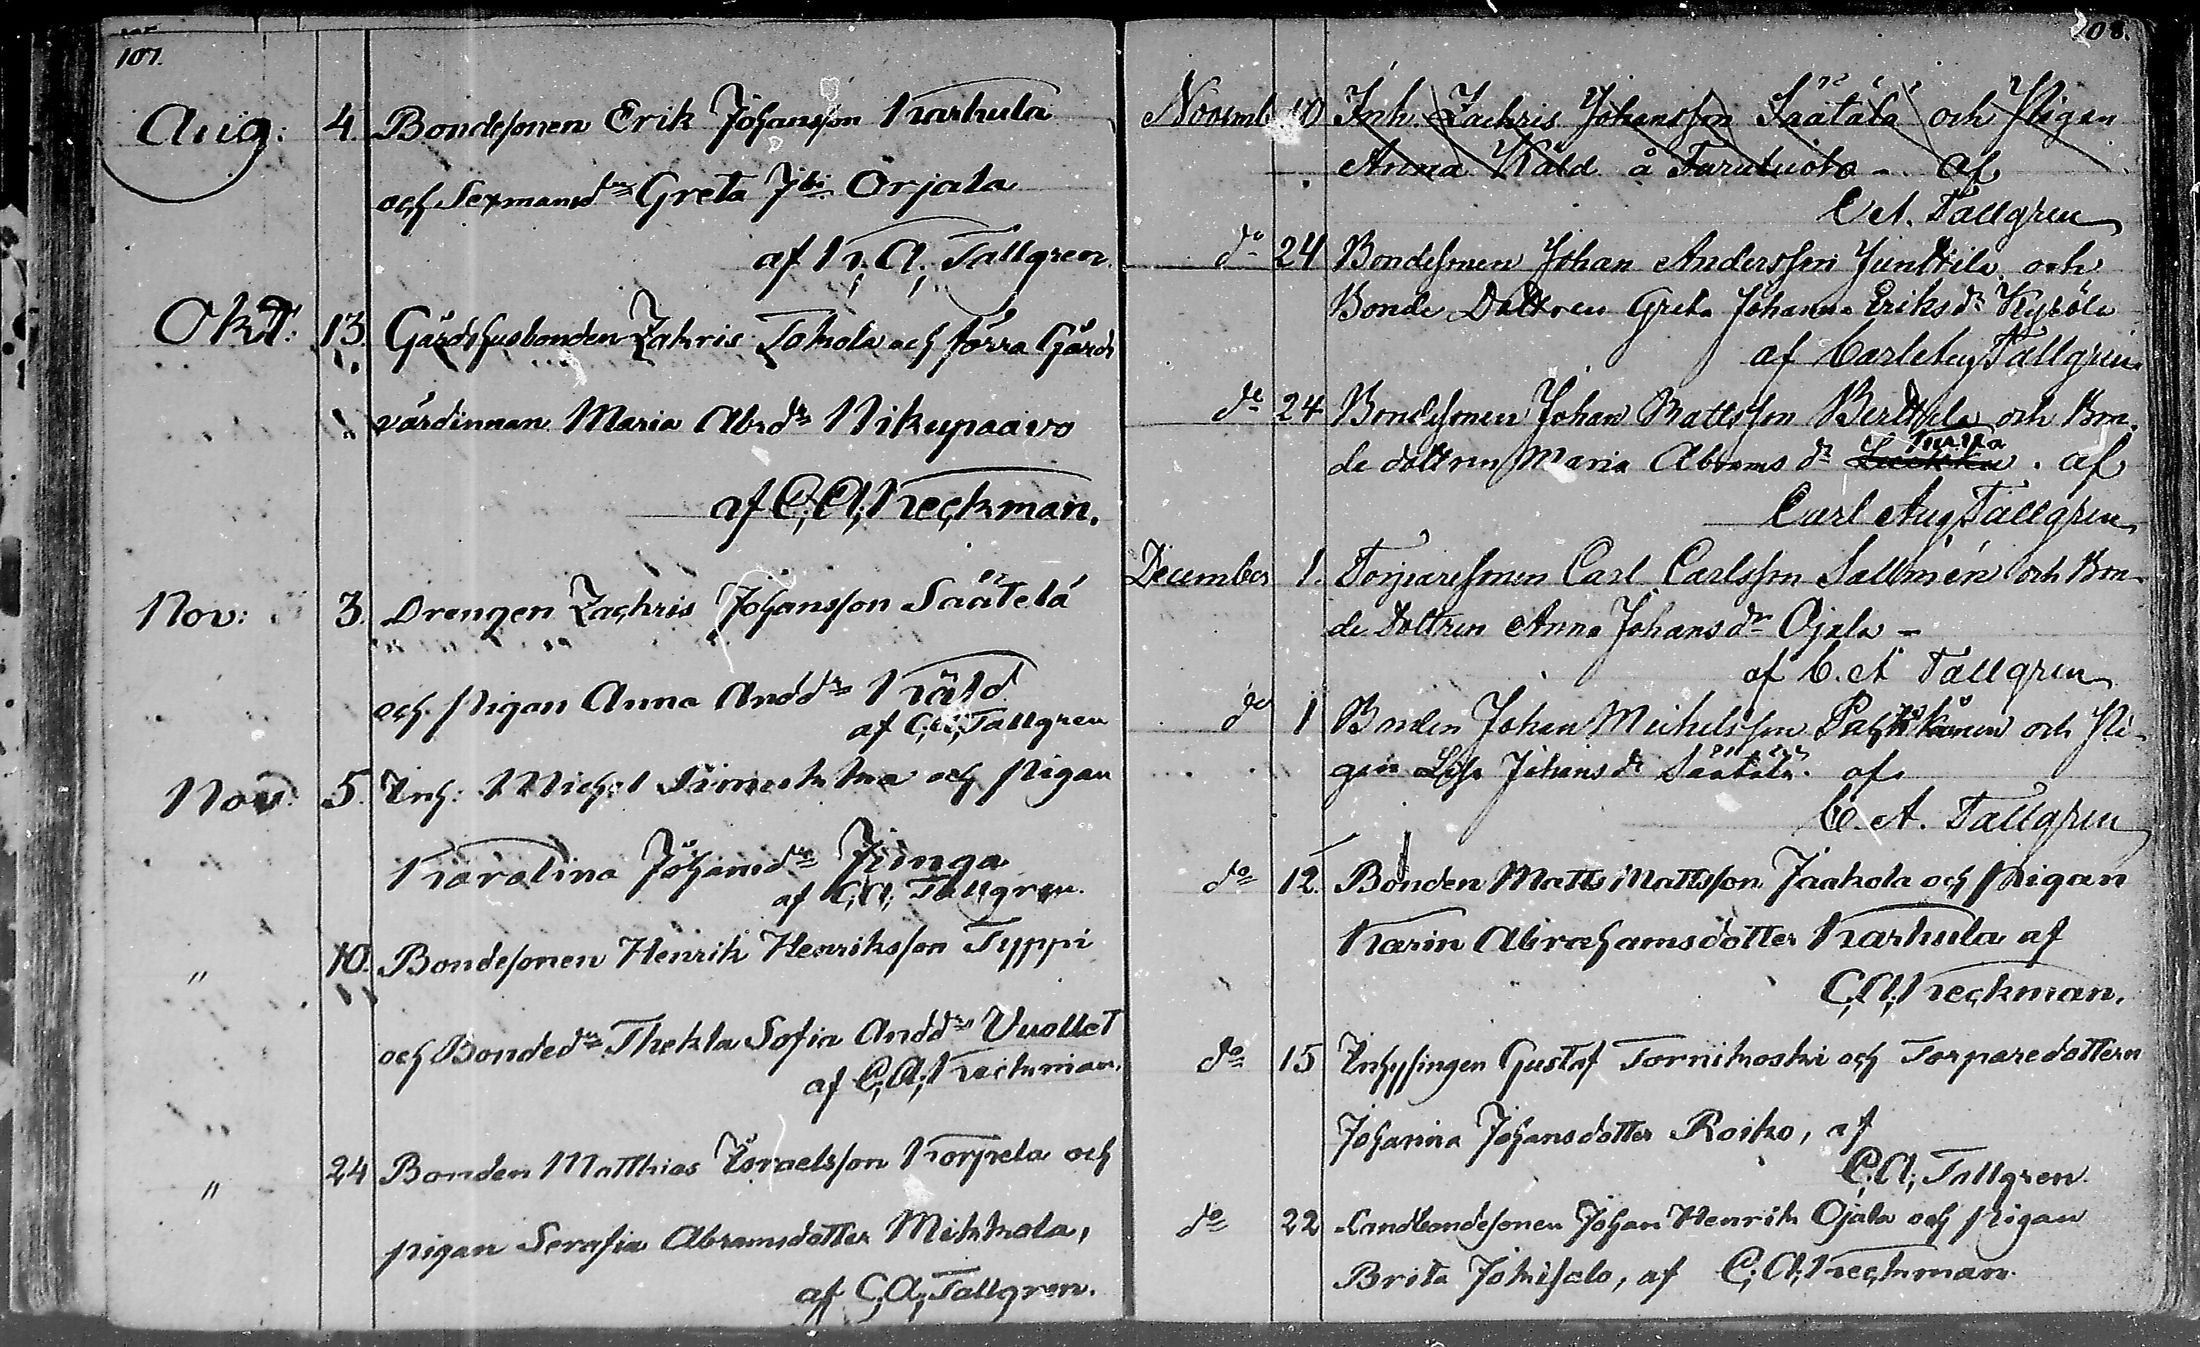 107.
Aug: 4. Bondesonen Erik Johansson Karhula
och Sexmansdr Greta Jbi. Orjala
af K. A. Tallgren.
Okt: 13. Gårdshusbonden Zakris Tokola och förra Gårds
värdinnan Maria Abrdr Nikupaavo
af C. A. Keckman.
Nov: 3. Drengen Zachris Johansson Säätelä
och Pigan Anna Anddr Kåld
af C. A. Tallgren
Nov: 5. Inh: Michel och Pigan
Karolina Johansdr Junga
af C. A. Tallgren.
" 10. Bondesonen Henrik Henriksson Typpi
och Bondedr Thekla Sofia Anddr Vuollet
af C. A. Keckman.
" 24 Bonden Matthias Israelsson Korpela och
pigan Serafia Abramsdotter Mikkola,
af C. A. Tallgren.
108.
Novemb 10 Inh. Zachris Johansson Säätälä och Pigan
Anna Kåld å . af
C A. Tallgren
do 24 Bondesonen Johan Andersson Junttila och
Bonde Dottren Greta Johanna Eriksdr
af Carl Aug Tallgren.
do 24 Bondesonen Johan Mattsson Berttula och Bon-
de dottren Maria Abramsdr . af
Carl Aug Tallgren
December 1. Torparesonen Carl Carlsson Sallmén och Bon-
de Dottren Anna Johansdr Ojala –
af C. A Tallgren
do 1 Bonden Johan Michelsson och Pi-
gan Lisa Johansdr Säätälä. af
C. A. Tallgren
do 12. Bonden Matts Mattsson Jaakola och Pigan
Karin Abrahamsdotter Karhula af
C. A. Keckman.
do 15 Inhysingen Gustaf Tornikoski och Torparedottern
Johanna Johansdotter Roiko, af
C. A. Tallgren.
do 22 Landbondesonen Johan Henrik Ojala och Pigan
Brita Jokisalo, af C. A. Keckman.